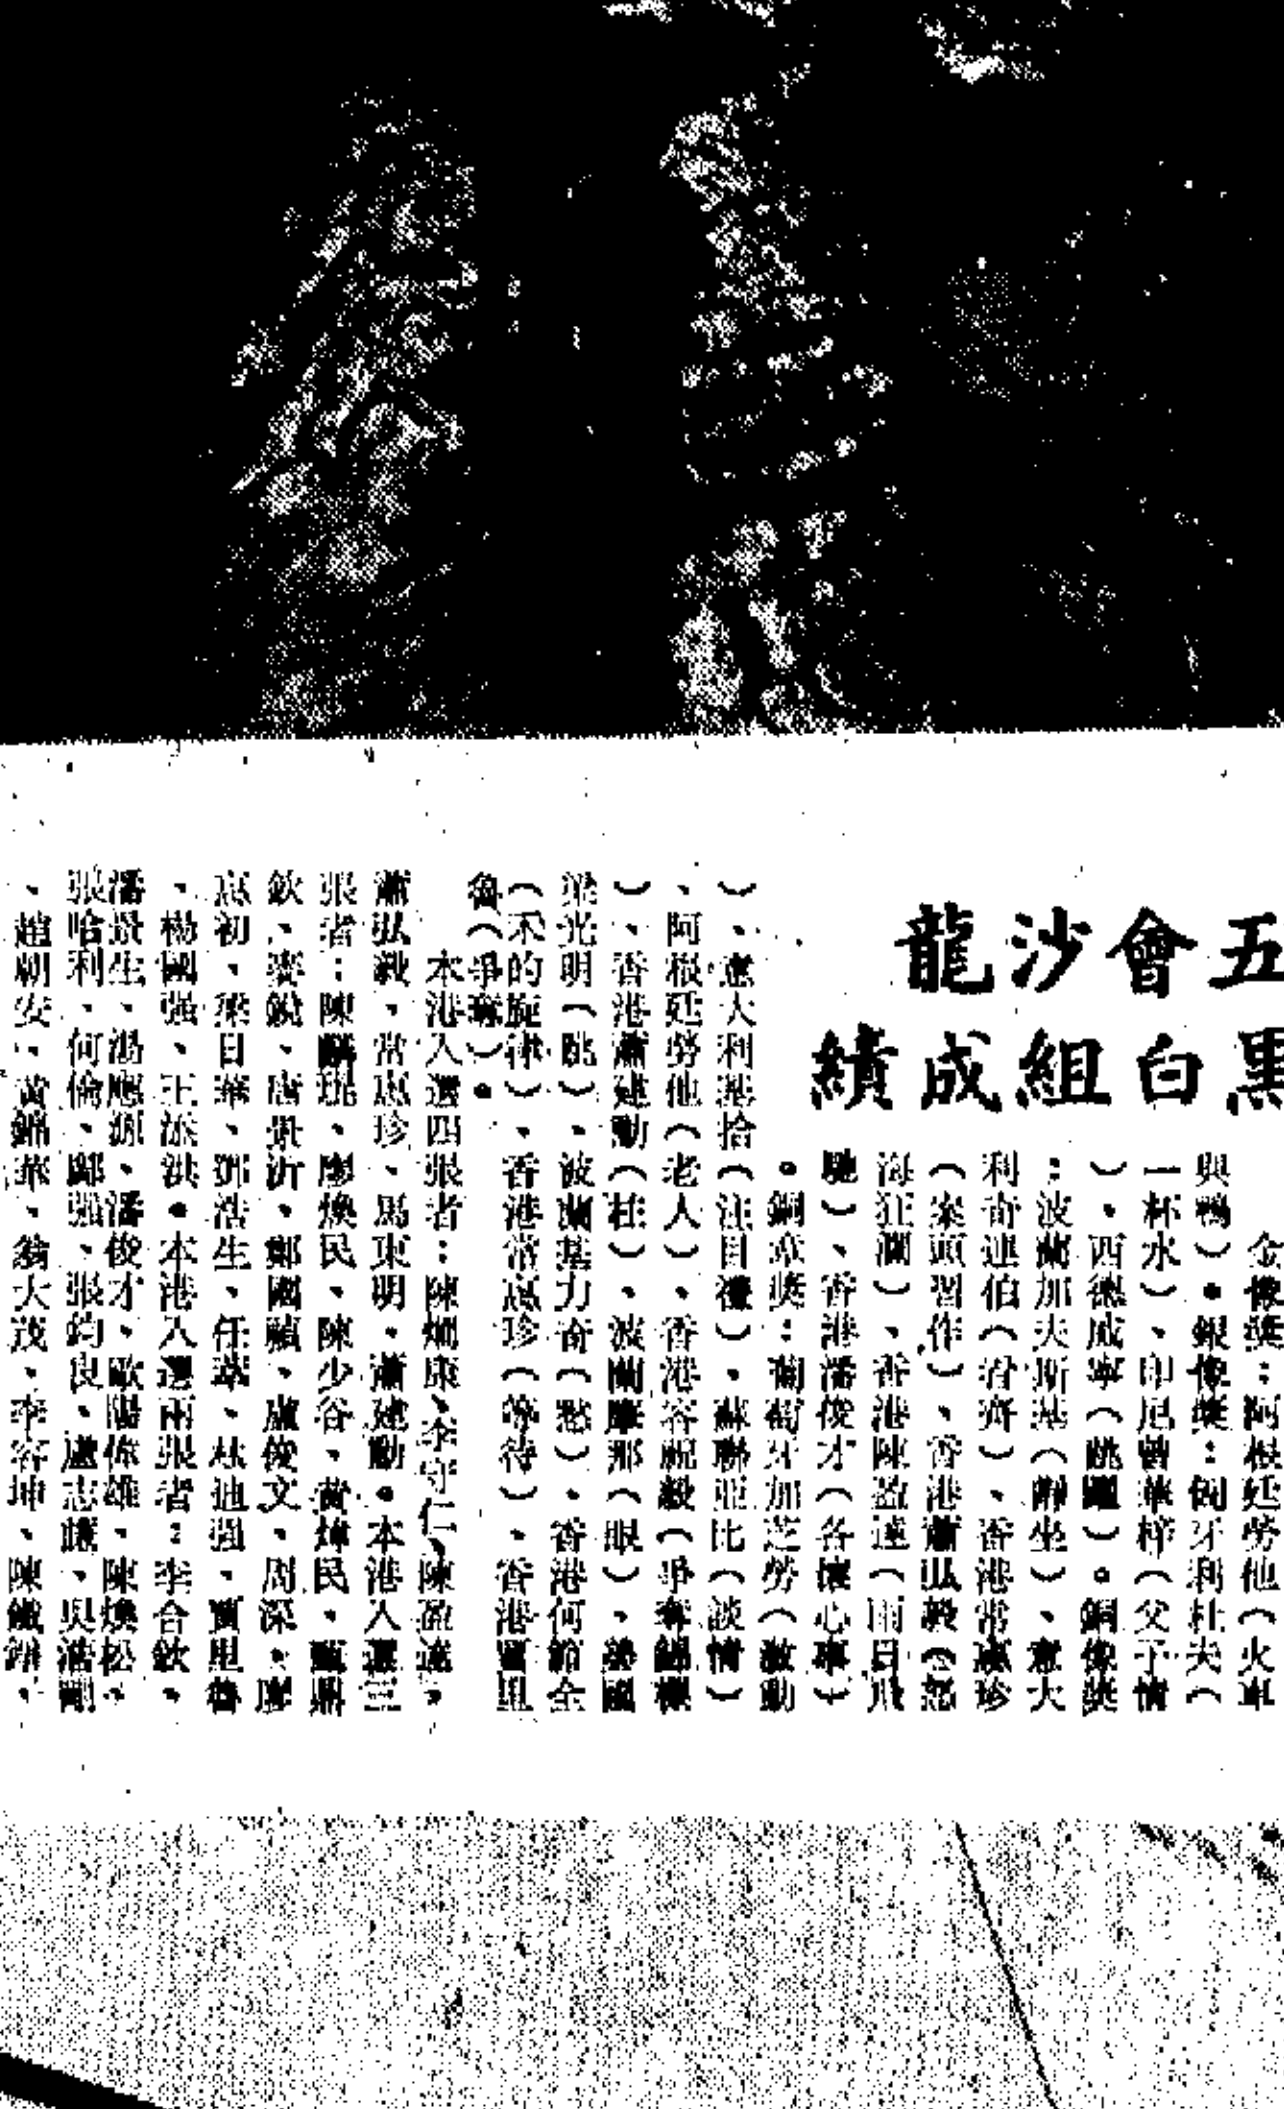 五會沙龍
黑白組成績
金像獎：阿根廷勞他（火車
與鴨）。銀像獎：匈牙利杜夫（
一杯水）、印尼曾華梓（父子情
）、西德成寧（跳躍）。銅像獎
：波蘭加夫斯基（靜坐）、意大
利奇連伯（看齊）、香港常惠珍
（案頭習作）、香港蕭弘毅（怒
海狂瀾）、香港陳盈達（雨日飛
馳）、香港潘俊才（各懷心事）
。銅章獎：葡萄牙加芝勞（激動
）、意大利基拾（注目禮）、蘇聯亞比（談情）
、阿根廷勞他（老人）、香港容祝毅（爭奪錦標
）、香港蕭建動（柱）、波蘭犀那（眼）、美國
梁光明（眺）、波蘭基力奇（愁）、香港何節全
（禾的旋律）、香港常惠珍（等待）、香港賈里
魯（爭奪）。
本港入選四張者：陳烱康、李守仁、陳盈達、
蕭弘毅、常惠珍、馬東明、蕭建動。本港入選三
張者：陳麟珖、廖煥民、陳少谷、黃煒民、甄鼎
欽、麥銳、唐景沂、鄭國頤、盧俊文、周深、廖
惠初、梁日華、鄧浩生、任萃、林迪强、賈里魯
、楊國强、王添洪。本港入選兩張者：李合欽、
潘景生、湯應源、潘俊才、歐陽偉雄、陳煥松、
張哈利、何倫、鄺强、張鈞良、盧志謙、吳浩剛
、趙朝安、黃錦華、翁大茂、李容坤、陳鐵錚、